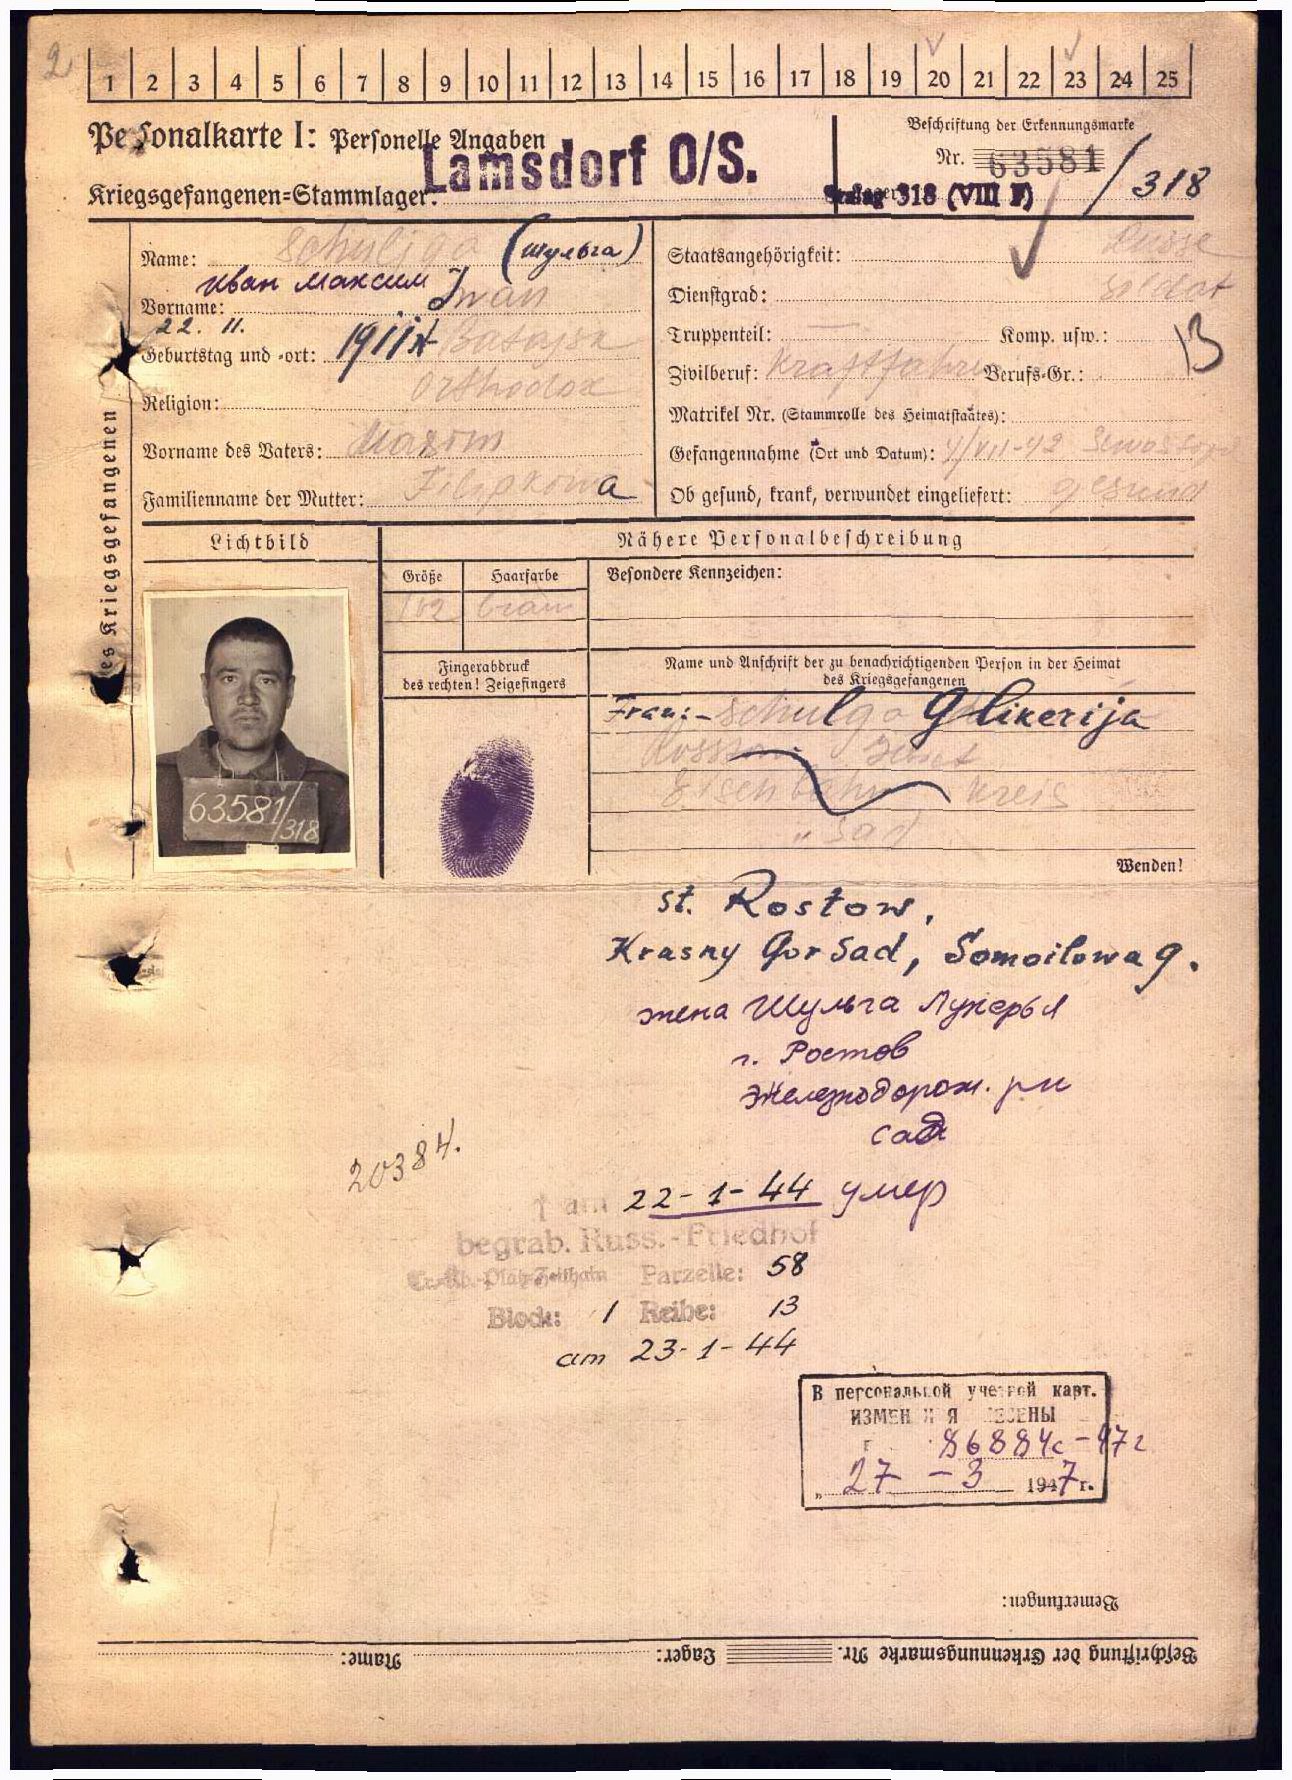 2
1 2 3 4 5 6 7 8 9 10 11 12 13 14 15 16 17 18 19 20 21 22 23 24 25
Personalkarte I: Personelle Angaben
Kriegsgefangenen=Stammlager: Lamsdorf O/S.
Beschriftung der Erkennungsmarke
Nr. 63581 / 318
Lager: Stalag 318 (VIII F)
des Kriegsgefangenen
Name: Schuljga (Шульга)
Иван Максим
Vorname: Iwan
22. 11.
Geburtstag und -ort: 1911 Batajsk
Religion: Orthodox
Vorname des Vaters: Maxim
Familienname der Mutter: Filipkowa
Staatsangehörigkeit: Russe
Dienstgrad: Soldat
Truppenteil: Komp. usw.:
Zivilberuf: Kraftfahrer Berufs-Gr.: 13
Matrikel Nr. (Stammrolle des Heimatstaates):
Gefangennahme (Ort und Datum): 4/VII-42 Sewastopol
Ob gesund, krank, verwundet eingeliefert: gesund
Lichtbild
Nähere Personalbeschreibung
Größe Haarfarbe Besondere Kennzeichen:
162 braun
63581/318
Fingerabdruck
des rechten! Zeigefingers
Name und Anschrift der zu benachrichtigenden Person in der Heimat
des Kriegsgefangenen
Frau:- Schulga Glikerija
Eisenbahn Kreis
" Sad
Wenden!
st. Rostow,
Krasny Gor Sad, Somoilowa 9.
жена Шульга Лукерья
г. Ростов
Железнодорож. рн
сад
20384.
† am 22-1-44 умер
begrab. Russ.-Friedhof
Tr.-Üb.-Platz Zeithain Parzelle: 58
Block: 1 Reihe: 13
am 23-1-44
В персональной учетной карт.
ИЗМЕНЕНИЯ ВНЕСЕНЫ
86884с-47г
„ 27 - 3 1947 г.
Bemerkungen:
Beschriftung der Erkennungsmarke Nr. Lager: Name: